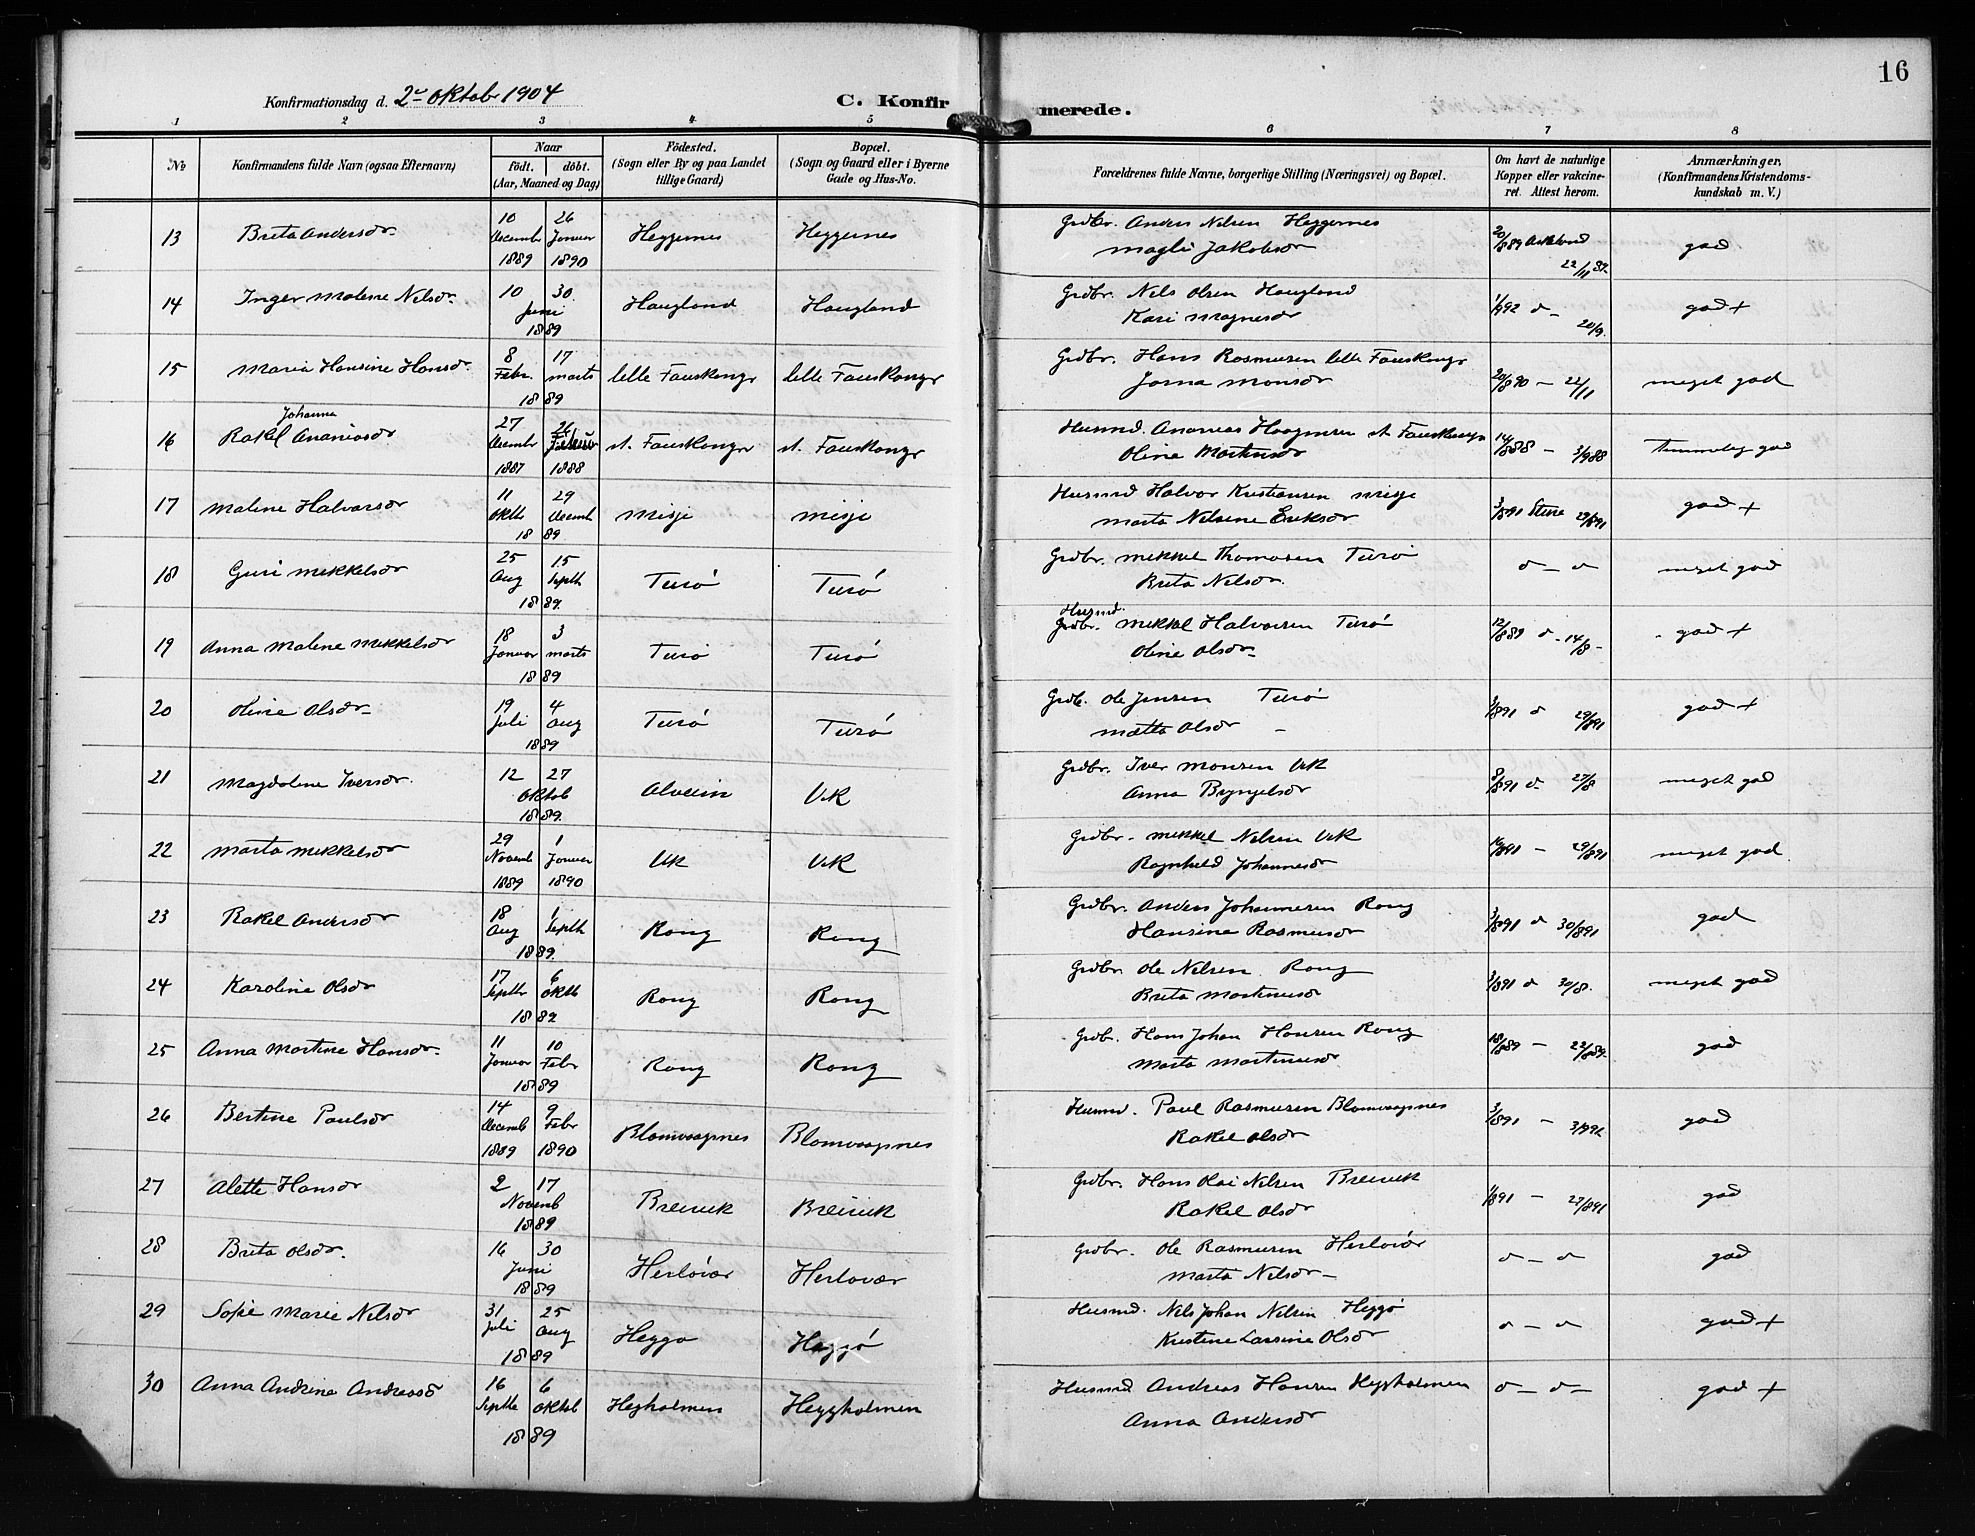 16
Konfirmationsdag d. 2 Oktob 1904 C. Konfirmerede.
1 2 3 4 5 6 7 8
No Konfirmandens fulde Navn (ogsaa Efternavn) Naar Födt. döbt. (Aar, Maaned og Dag) Födested. (Sogn eller By og paa Landet tillige Gaard) Bopæl. (Sogn og Gaard eller i Byerne Gade og Hus-No. Forældrenes fulde Navne, borgerlige Stilling (Næringsvei) og Bopæl. Om havt de naturlige Kopper eller vakcineret. Attest herom. Anmærkninger, (Konfirmandens Kristendomskundskab m. V.)
13 Brita Andersdr 10 Decembr 1889 26 Januar 1890 Heggernes Heggernes Grdbr. Anders Nilsen Heggernes
Magli Jakobsdr god
14 Inger Malene Nilsdr 10 30 Juni 1889 Haugland Haugland Grdbr. Nils Olsen Haugland
Kari Magnesdr god +
15 Maria Hansine Hansdr 8 Febr. 17 marts 1889 lille Fauskanger lille Fauskanger Grdbr. Hans Rasmusen lille Fauskangr
Monsdr meget god
16 Rakel Johanna Ananiasdr 27 Decembr 1887 26 Februar 1888 st. Fauskangr st. Fauskangr Husmd. Ananias Haagensen st Fauskangr
Oline Martinsdr temmelig god
17 Malene Halvorsdr 11 Oktb 29 Decemb 1889 Misje Misje Husmd Halvor Kristiansen Misje
Marta Nilsine Eriksdr god +
18 Guri Mikkelsdr 25 Aug 15 Septb 1889 Turö Turö Grdbr. Mikkel Thomasen Turö
Brita Nilsdr. meget god
19 Anna Malene Mikkelsdr 18 Januar 3 marts 1889 Turö Turö Husmd. Grdbr. Mikkel Halvorsen Turö
Oline Olsdr god +
20 Oline Olsdr 19 Juli 4 Aug 1889 Turö Turö Grdb. Ole Jensen Turö
Mætta Olsdr god +
21 Magdalene Iversdr. 12 27 Oktob 1889 Alveim Vik Grdbr. Iver Monsen Vik
Anna Byngelsdr meget god
22 Marta Mikkelsdr 29 Novemb 1889 1 Januar 1890 Vik Vik Grdbr. Mikkel Nilsen Vik
Ragnhild Johannesdr meget god
23 Rakel Andersdr 18 Aug 1 Septb 1889 Rong Rong Grdbr. Anders Johannesen Rong
Hansine Rasmusdr god
24 Karoline Olsdr 17 Septbr 6 Oktb 1889 Rong Rong Grdbr Ole Nilsen Rong
Brita Martinusdr meget god
25 Anna Martine Hansdr. 11 Januar 10 Febr 1889 Rong Rong Grdb. Hans Johan Hansen Rong
Marta Martinusdr god
26 Bertine Paulsdr 14 Decemb 1889 9 Febr 1890 Blomvaagnes Blomvaagnes Husmd. Paul Rasmusen Blomvaagnes
Rakel Olsdr god
27 Alette Hansdr 2 17 Novemb 1889 Breivik Breivik Grdbr. Hans Kai Nilsen Breivik
Rakel Olsdr god
28 Brita Olsdr. 16 30 Juni 1889 Herlövær Herlovær Grdbr. Ole Rasmusen Herlövær
Marta Nilsdr god
29 Sofie Marie Nilsdr 31 Juli 25 Aug 1889 Heggö Heggö Husmd. Nils Johan Nilsen Heggö
Kristine Larsine Olsdr god +
30 Anna Andrina Andreasd 16 Septbr 6 Oktob 1889 Hegholmen Heggholmen Husmd Andreas Hansen Heggholmen
Anna Andersdr god +